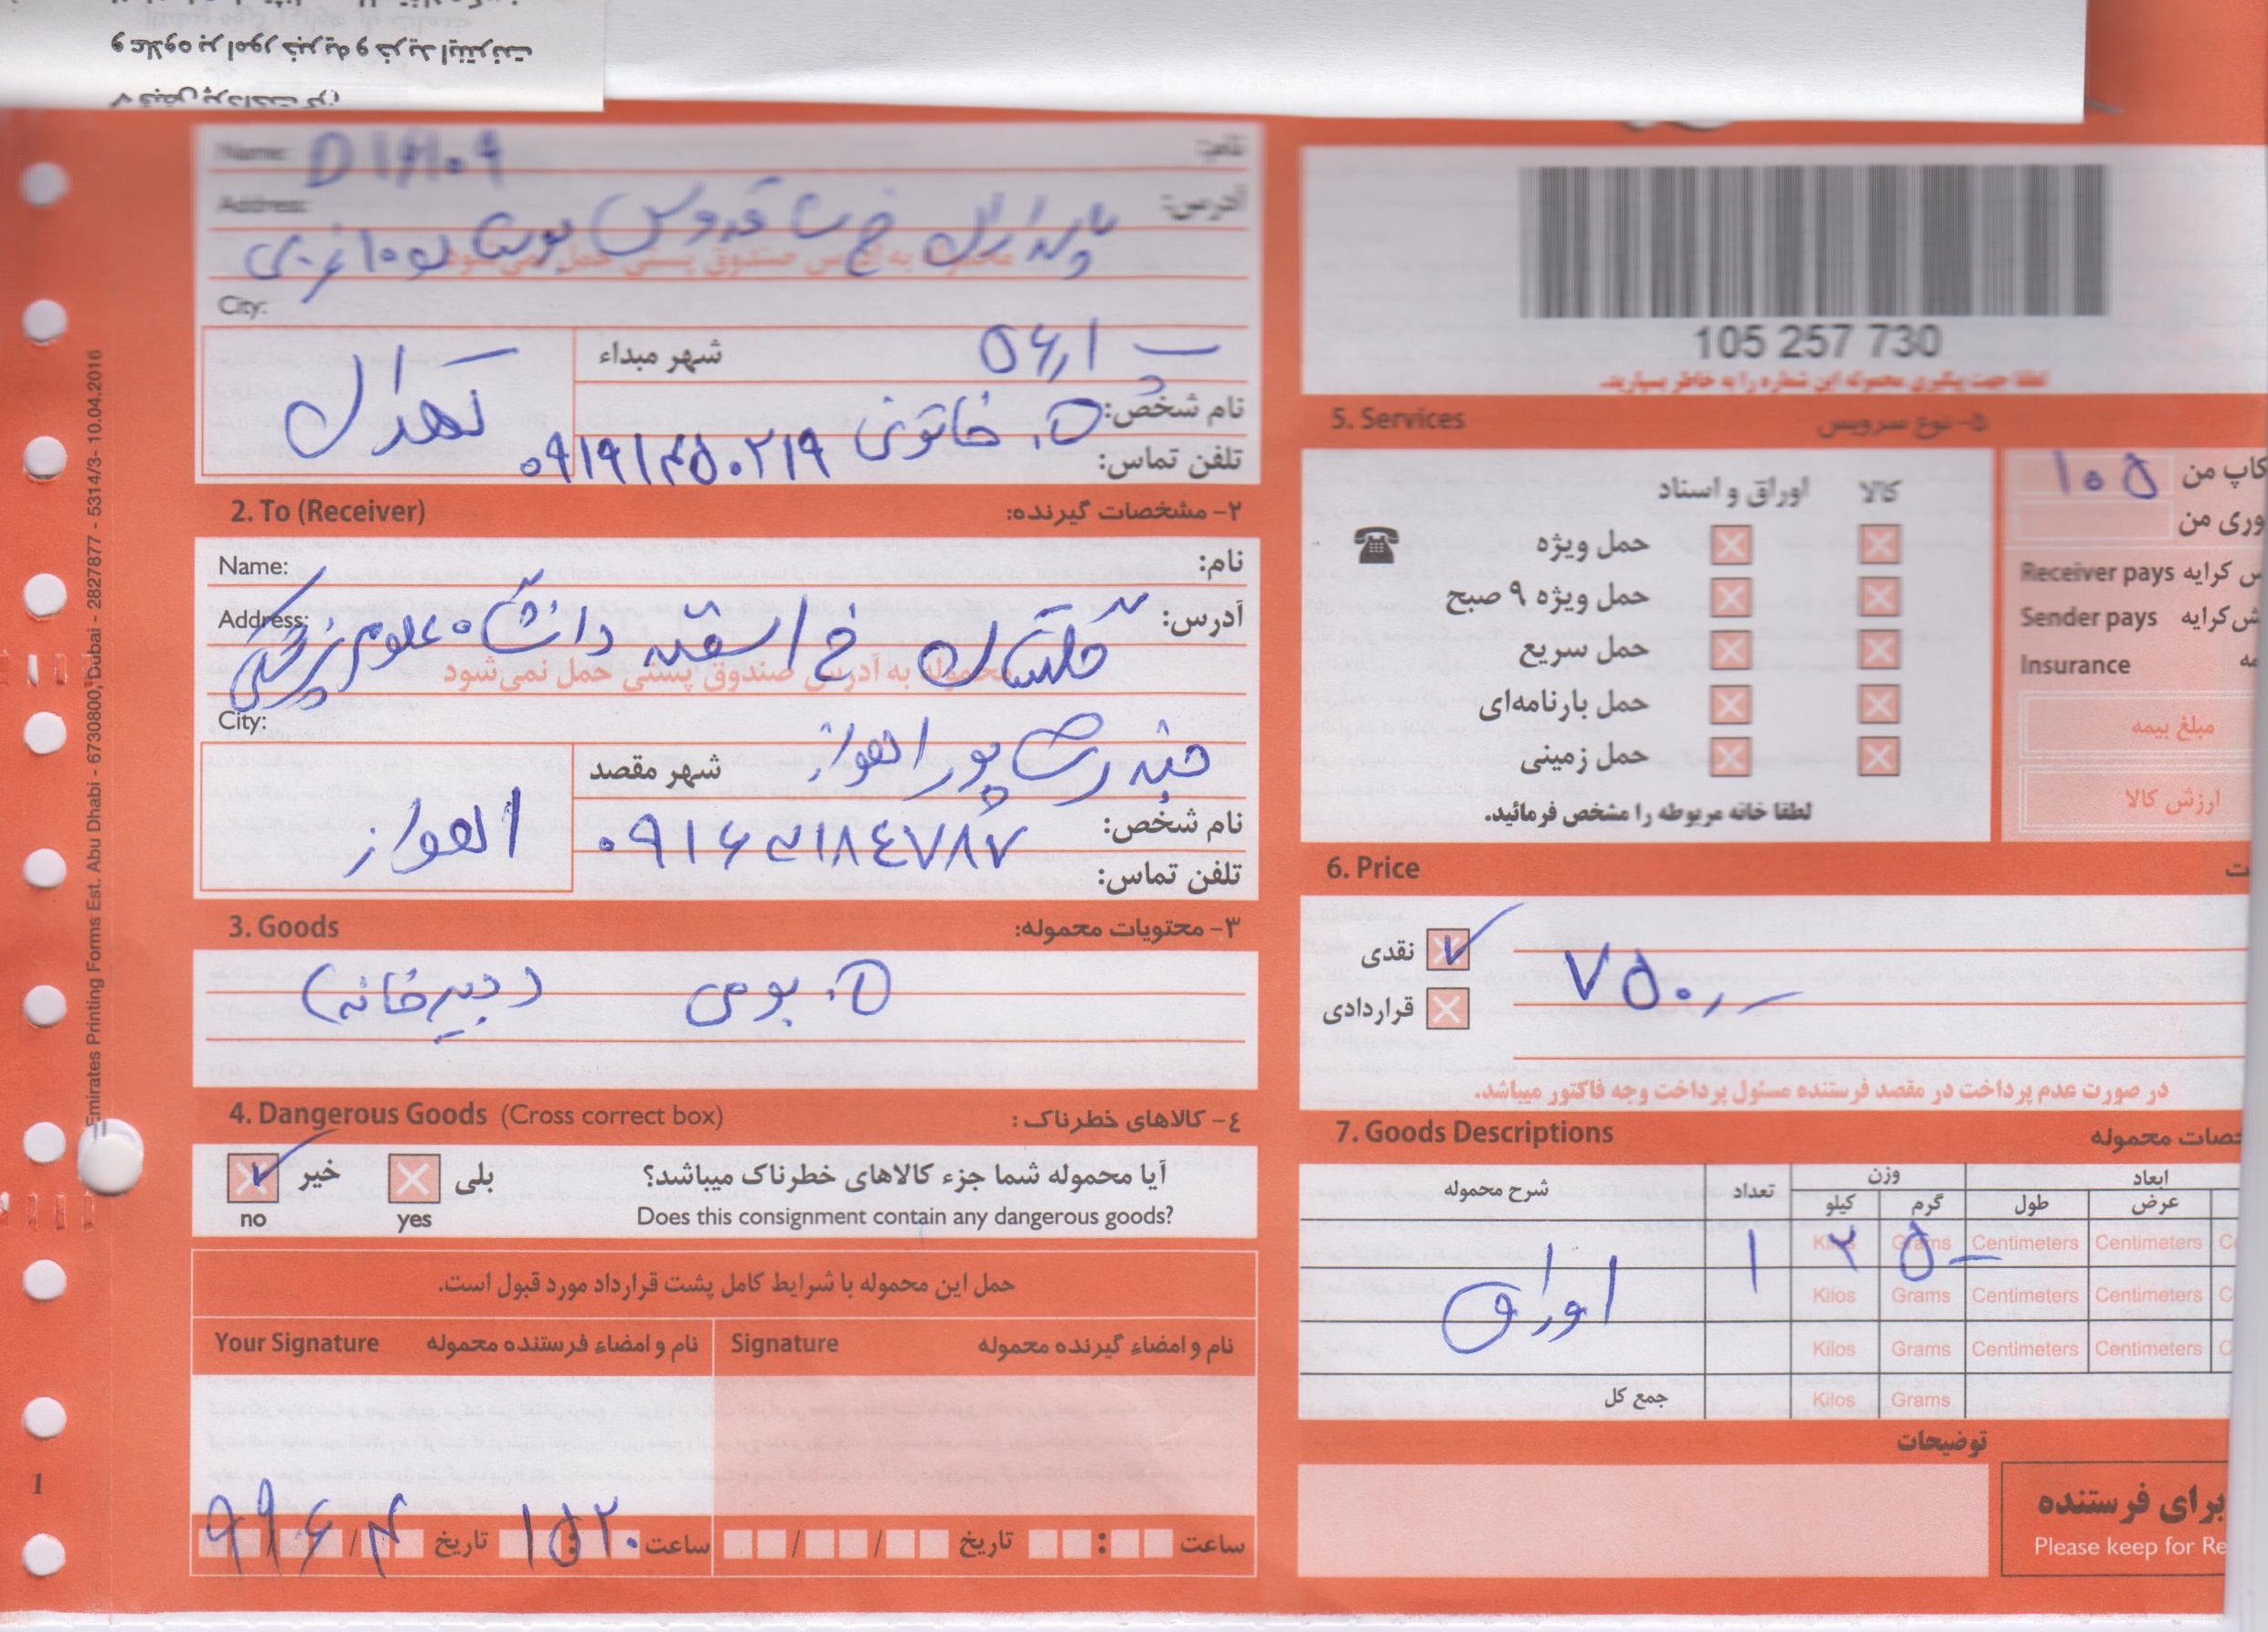 و علاوه بر امور خیریه و خرید اینترنت
Name:
نام:
Address:
آدرس:
محموله به آدرس صندوق پستی حمل نمی‌شود
City:
شهر مبداء
تهران
نام شخص:
خ. خاتونی
تلفن تماس:
۰۹۱۹۱۴۵۰۲۱۹
2. To (Receiver)
۲- مشخصات گیرنده:
Name:
نام:
Address:
آدرس:
گلستان خ اسفند دانشگاه علوم پزشکی
محموله به آدرس صندوق پستی حمل نمی‌شود
City:
شهر مقصد
اهواز
نام شخص:
تلفن تماس:
3. Goods
۳- محتویات محموله:
(دبیرخانه)
4. Dangerous Goods (Cross correct box)
٤- کالاهای خطرناک :
آیا محموله شما جزء کالاهای خطرناک میباشد؟
بلی
خیر
Does this consignment contain any dangerous goods?
yes
no
حمل این محموله با شرایط کامل پشت قرارداد مورد قبول است.
Your Signature
نام و امضاء فرستنده محموله
Signature
نام و امضاء گیرنده محموله
ساعت ۱۵۲۰
تاریخ ۹۹/۶/۴
ساعت
تاریخ
105 257 730
لطفا جهت پیگیری محموله این شماره را به خاطر بسپارید.
5. Services
۵- نوع سرویس
کالا
اوراق و اسناد
حمل ویژه
حمل ویژه ۹ صبح
حمل سریع
حمل بارنامه‌ای
حمل زمینی
لطفا خانه مربوطه را مشخص فرمائید.
کاپ من ۱۰۵
وری من
Receiver pays س کرایه
Sender pays ش کرایه
Insurance مه
مبلغ بیمه
ارزش کالا
6. Price
ت
نقدی
قراردادی
در صورت عدم پرداخت در مقصد فرستنده مسئول پرداخت وجه فاکتور میباشد.
7. Goods Descriptions
خصات محموله
شرح محموله
تعداد
وزن
ابعاد
کیلو
گرم
طول
عرض
اوراق
۱
۲
۵
Kilos Grams Centimeters Centimeters C
Kilos Grams Centimeters Centimeters C
Kilos Grams Centimeters Centimeters C
جمع کل
Kilos Grams
توضیحات
برای فرستنده
Please keep for Re
Emirates Printing Forms Est. Abu Dhabi - 6730800, Dubai - 2827877 - 5314/3- 10.04.2016
1